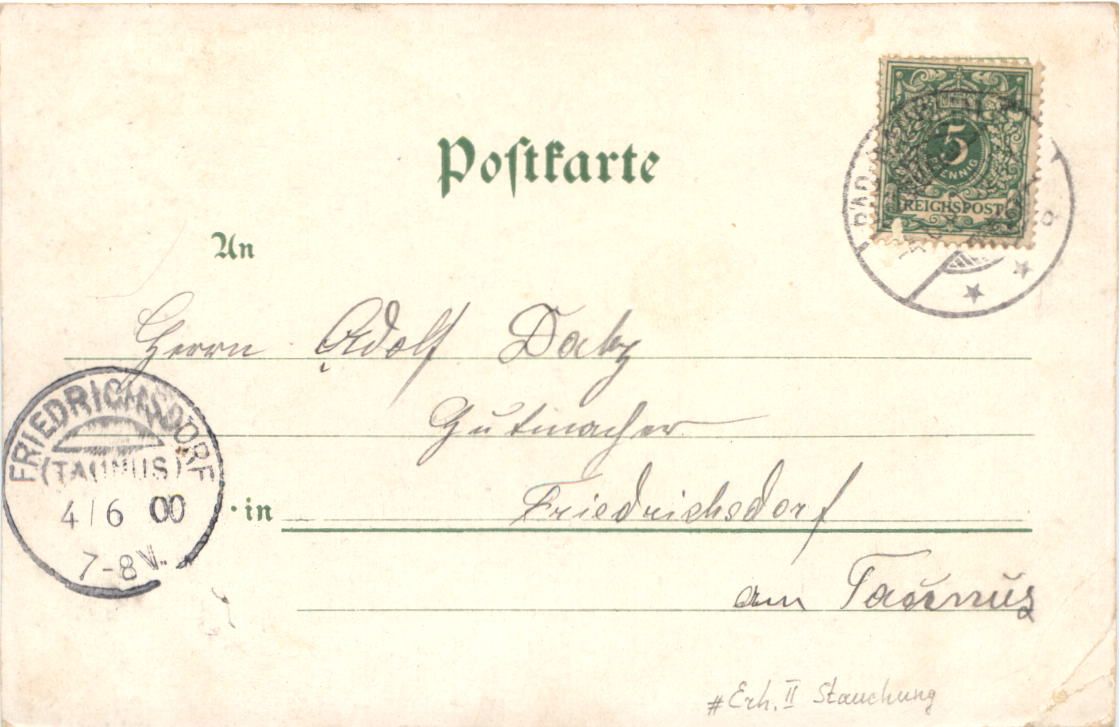 Postkarte
5
PFENNIG
REICHSPOST
An
Herrn Adolf Daby
Gutmacher
FRIEDRICHSDORF
(TAUNUS)
4/6 00
7-8 V.
in Friedrichsdorf
am Taunus
# Erh. II Stauchung